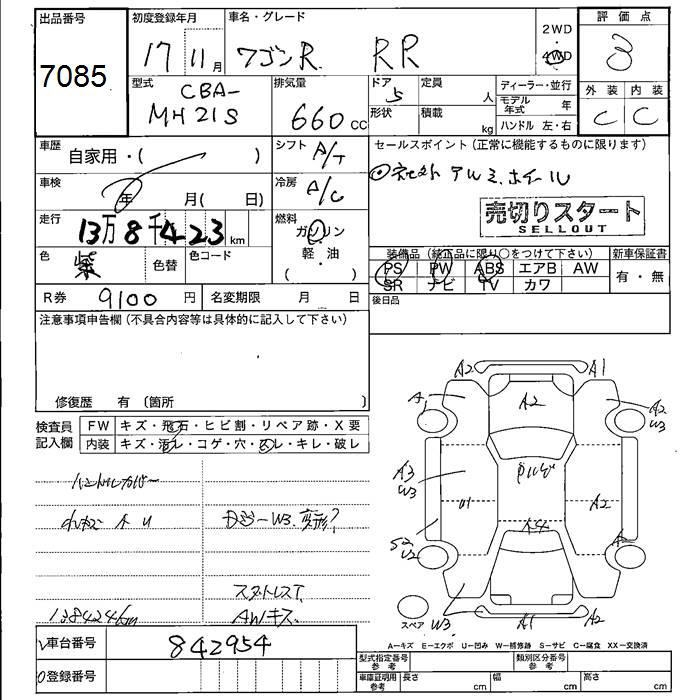 出品番号 初度登録年月 車名・グレード 2WD 評価点
7085 17 11月 ワゴンR RR 4WD 3
型式 CBA- 排気量 ドア 5 定員 人 ディーラー・並行 外装 内装
MH21S 660cc 形状 積載 kg モデル年式 年 C C
ハンドル 左・右
車歴 自家用・( ) シフト A/T セールスポイント(正常に機能するものに限ります)
車検 年 月( 日) 冷房 A/C ◎社外アルミホイール
売切りスタート
SELLOUT
走行 13万8千423km 燃料 ガソリン・軽油 ( )
色 紫 色替 色コード
装備品(純正品に限り○をつけて下さい) 新車保証書
PS PW ABS エアB AW 有・無
SR ナビ TV カワ
R券 9100円 名変期限 月 日 後日品
注意事項申告欄(不具合内容等は具体的に記入して下さい)
修復歴 有 〔箇所
検査員記入欄 FW キズ・飛石・ヒビ割・リペア跡・X要
内装 キズ・汚レ・コゲ・穴・スレ・キレ・破レ
A2 A1
A1 A2 A2 W3
ハンドルカバー A3 W3 A2
W3 変形?
S2 U2
スタットレスT
138424km AWキズ
スペア W3 A1 A2
A−キズ E−エクボ U−凹み W−補修跡 S−サビ C−腐食 XX−交換済
車台番号 842954
登録番号
型式指定番号 参考 類別区分番号 参考
車庫証明用 参考 長さ cm 幅 cm 高さ cm